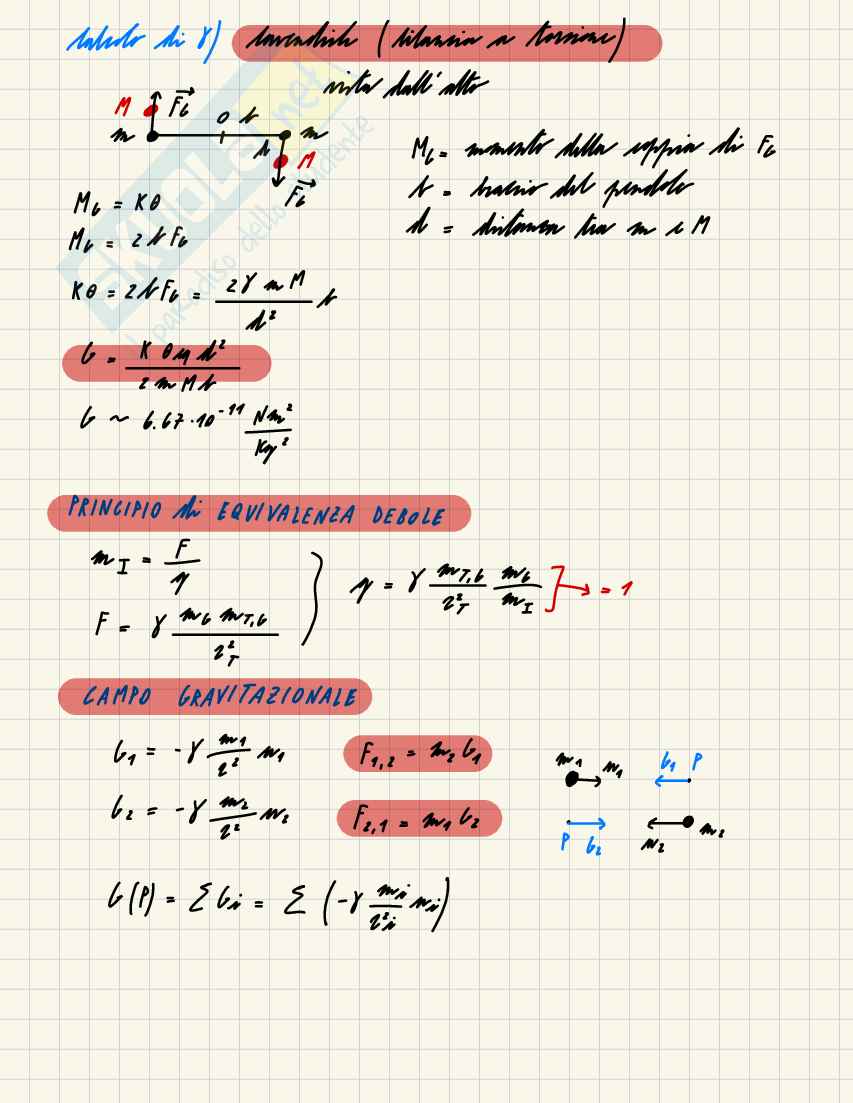 calcolo di γ) Cavendish (bilancia a torsione)
vista dall'alto
M F_G O b
m m
d M
F_G
M_G = momento della coppia di F_G
b = braccio del pendolo
d = distanza tra m e M
M_G = Kθ
M_G = 2bF_G
Kθ = 2bF_G = 2γmM/d² b
G = Kθeq d²/2mMb
G ~ 6.67·10⁻¹¹ Nm²/Kg²
PRINCIPIO di EQUIVALENZA DEBOLE
m_I = F/g
F = γ m_G m_T,G/r²_T
g = γ m_T,G/r²_T m_G/m_I → = 1
CAMPO GRAVITAZIONALE
G₁ = -γ m₁/r² u₁ F₁,₂ = m₂G₁
G₂ = -γ m₂/r² u₂ F₂,₁ = m₁G₂
m₁ u₁ G₁ P
P G₂ u₂ m₂
G(P) = ΣGi = Σ(-γ mi/r²i ui)
SKUOLA.net
il paradiso dello studente